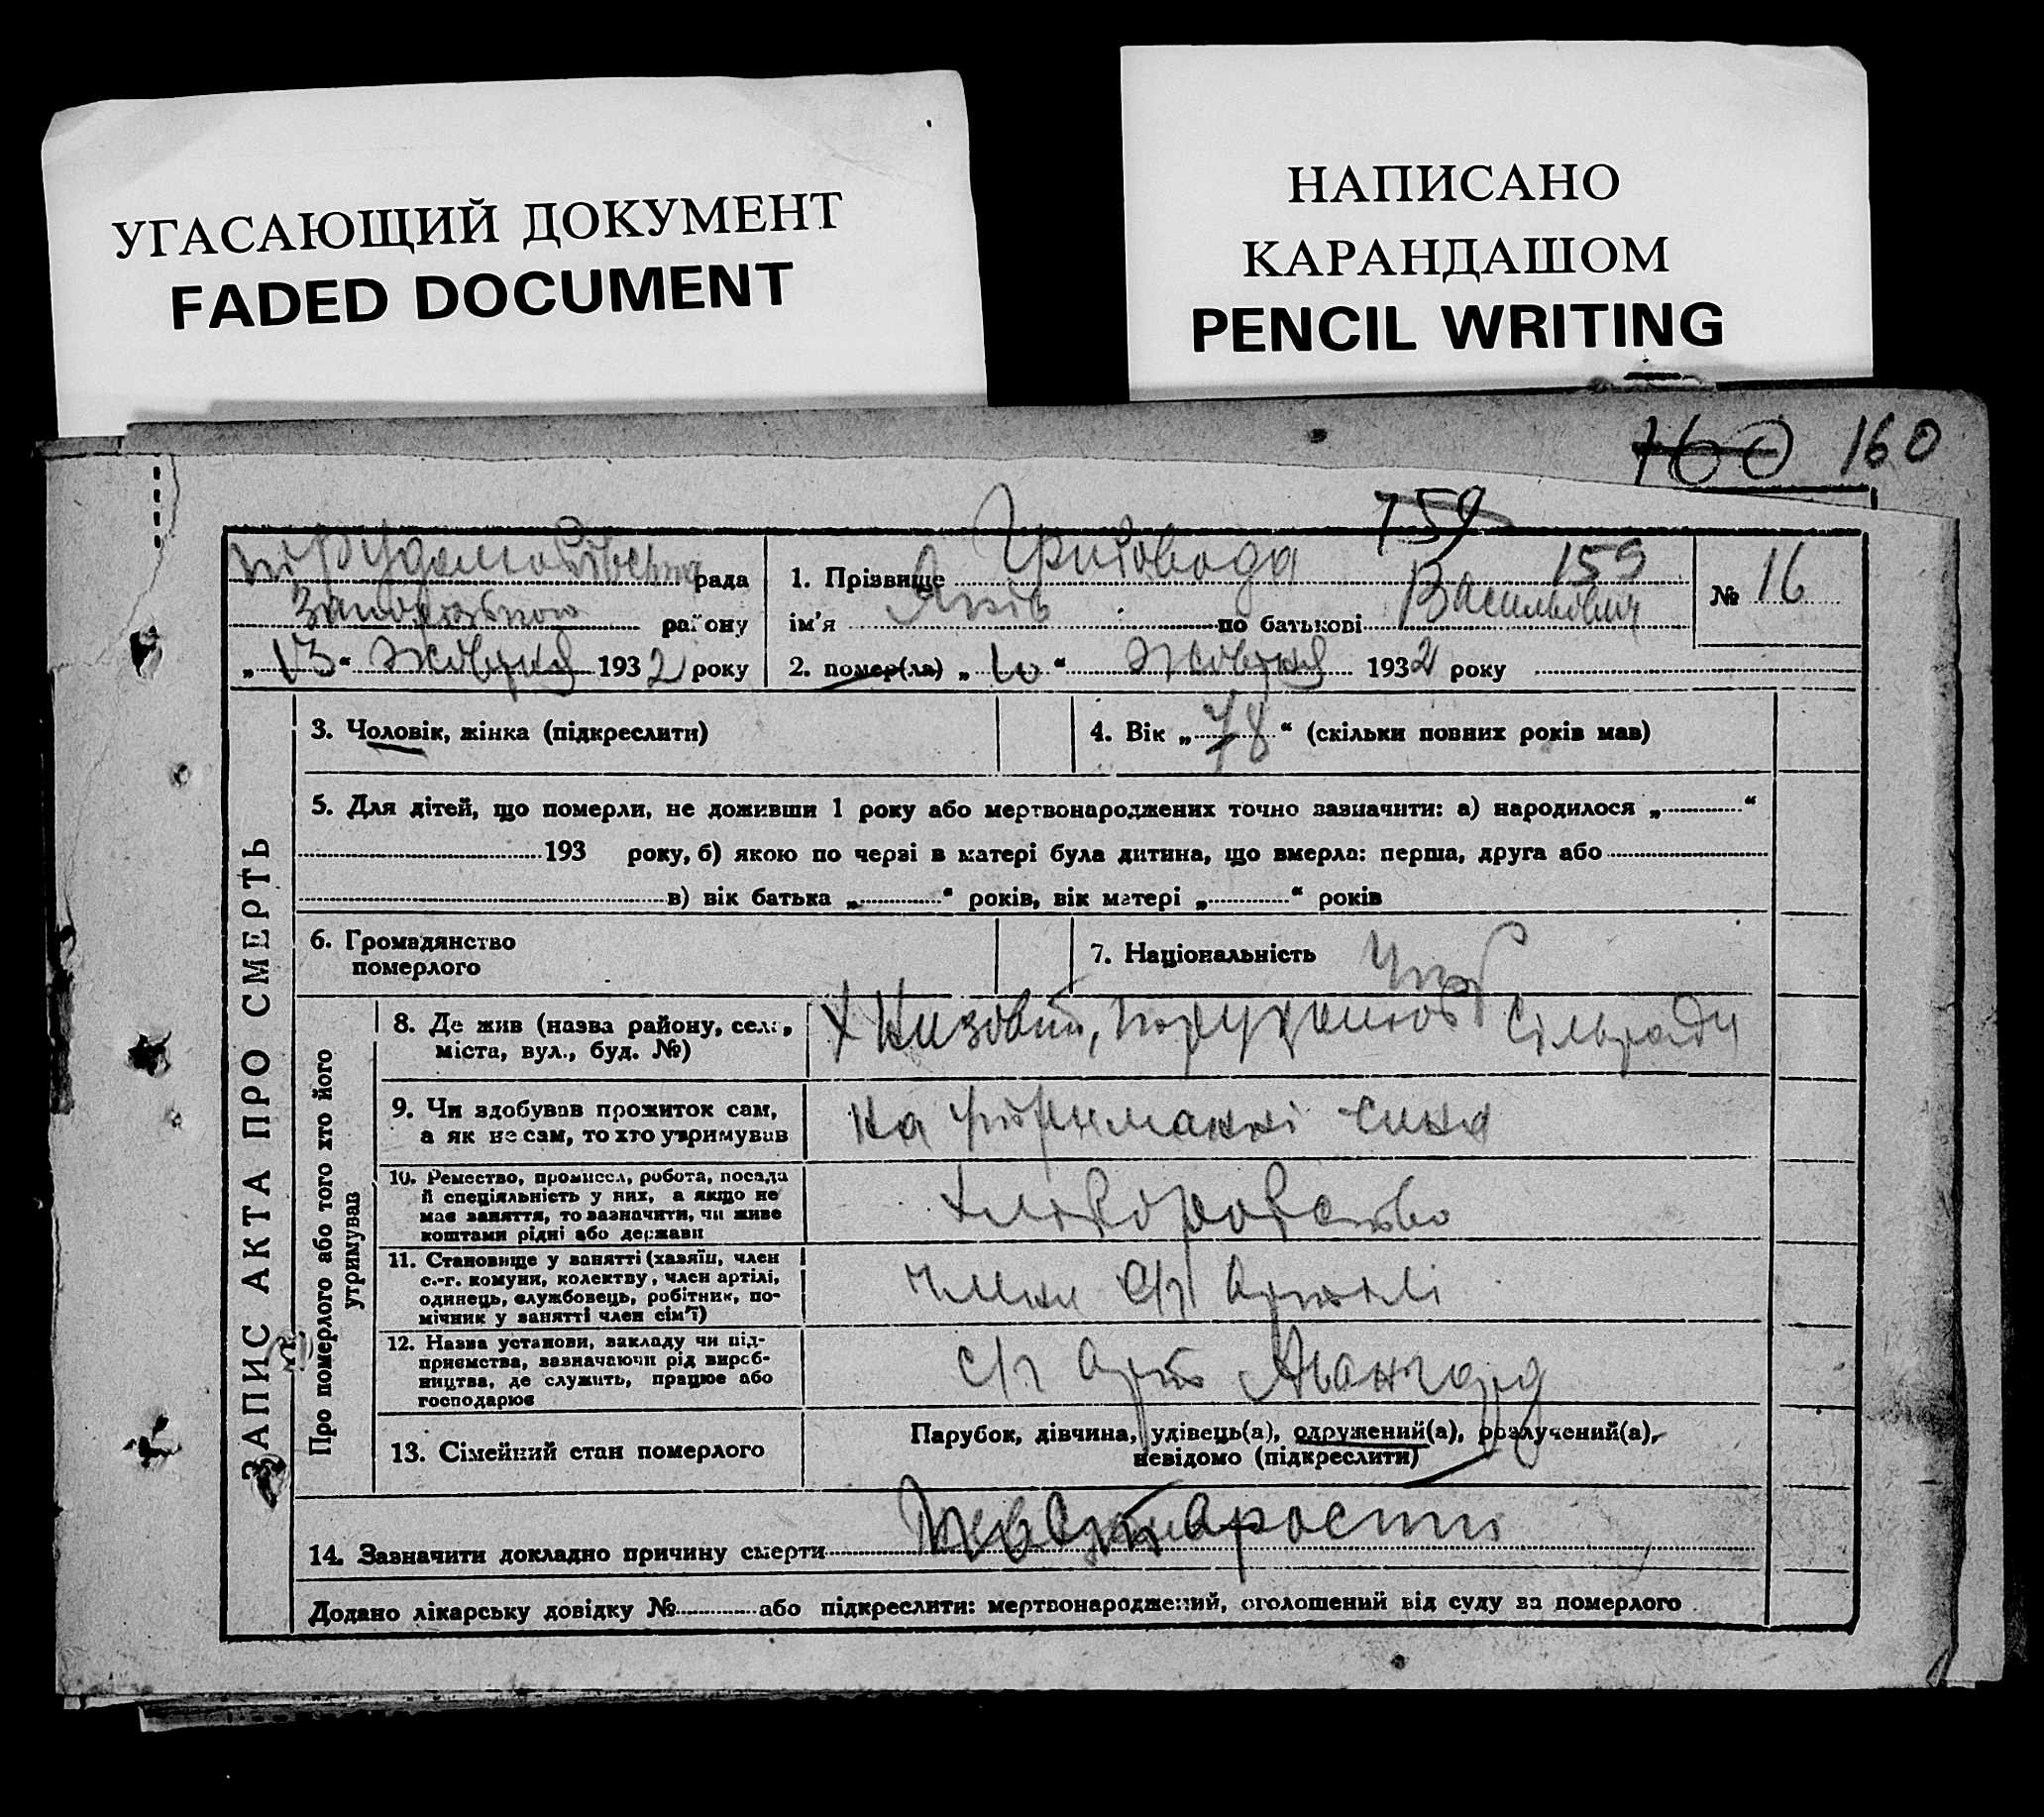 УГАСАЮЩИЙ ДОКУМЕНТ
FADED DOCUMENT
НАПИСАНО
КАРАНДАШОМ
PENCIL WRITING
160 160
159
рада
району
„13“ Жовтня 1932 року
1. Прізвище 159
ім'я Яків по батькові Васильович
2. помер(ла) „10“ Жовтня 1932 року
№ 16
ЗАПИС АКТА ПРО СМЕРТЬ
3. Чоловік, жінка (підкреслити)
4. Вік „78“ (скільки повних років мав)
5. Для дітей, що померли, не доживши 1 року або мертвонароджених точно зазначити: а) народилося „ “
193 року, б) якою по черзі в матері була дитина, що вмерла: перша, друга або
в) вік батька „ “ років, вік матері „ “ років
6. Громадянство
померлого
7. Національність Укр
Про померлого або того хто його
утримував
8. Де жив (назва району, села,
міста, вул., буд. №)
Сільради
9. Чи здобував прожиток сам,
а як не сам, то хто утримував
на утриманні сина
10. Ремество, промисел, робота, посада
й спеціяльність у них, а якщо не
має заняття, то зазначити, чи живе
коштами рідні або держави
хлоборобство
11. Становище у занятті (хазяїн, член
с.-г. комуни, колектву, член артілі,
одинець, службовець, робітник, по-
мічник у занятті член сім'ї)
член С/г Артілі
12. Назва установи, закладу чи під-
приємства, зазначаючи рід вироб-
ництва, де служить, працює або
господарює
с/г Арт Авангард
13. Сімейний стан померлого
Парубок, дівчина, удівець(а), одружений(а), розлучений(а),
невідомо (підкреслити)
14. Зазначити докладно причину смерти старости
Додано лікарську довідку № або підкреслити: мертвонароджений, оголошений від суду за померлого